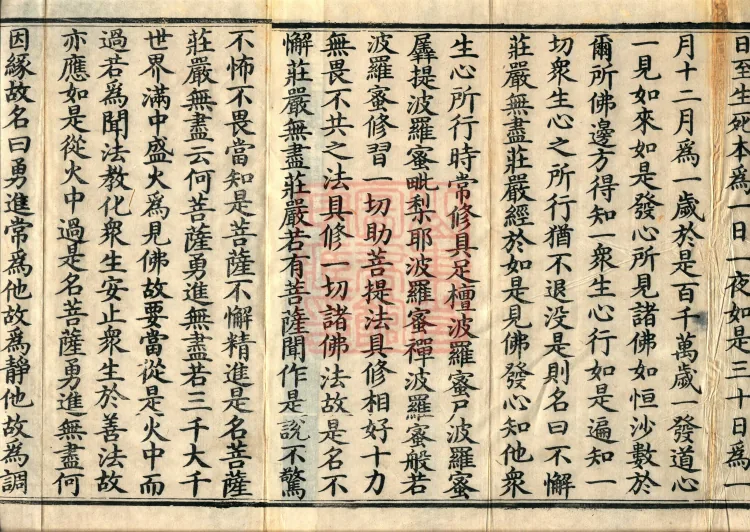 日至生死本爲一日一夜如是三十日爲一
月十二月爲一歲於是百千萬歲一發道心
一見如來如是發心所見諸佛如恒沙數於
爾所佛邊方得知一衆生心行如是遍知一
切衆生心之所行猶不退没是則名曰不懈
莊嚴無盡莊嚴經於如是見佛發心知他衆
生心所行時常修具足檀波羅蜜尸波羅蜜
羼提波羅蜜毗梨耶波羅蜜禪波羅蜜般若
波羅蜜修習一切助菩提法具修相好十力
無畏不共之法具修一切諸佛法故是名不
懈莊嚴無盡莊嚴若有菩薩聞作是説不驚
不怖不畏當知是菩薩不懈精進是名菩薩
莊嚴無盡云何菩薩勇進無盡若三千大千
世界滿中盛火爲見佛故要當從是火中而
過若爲聞法教化衆生安止衆生於善法故
亦應如是從火中過是名菩薩勇進無盡何
因緣故名曰勇進常爲他故爲靜他故爲調